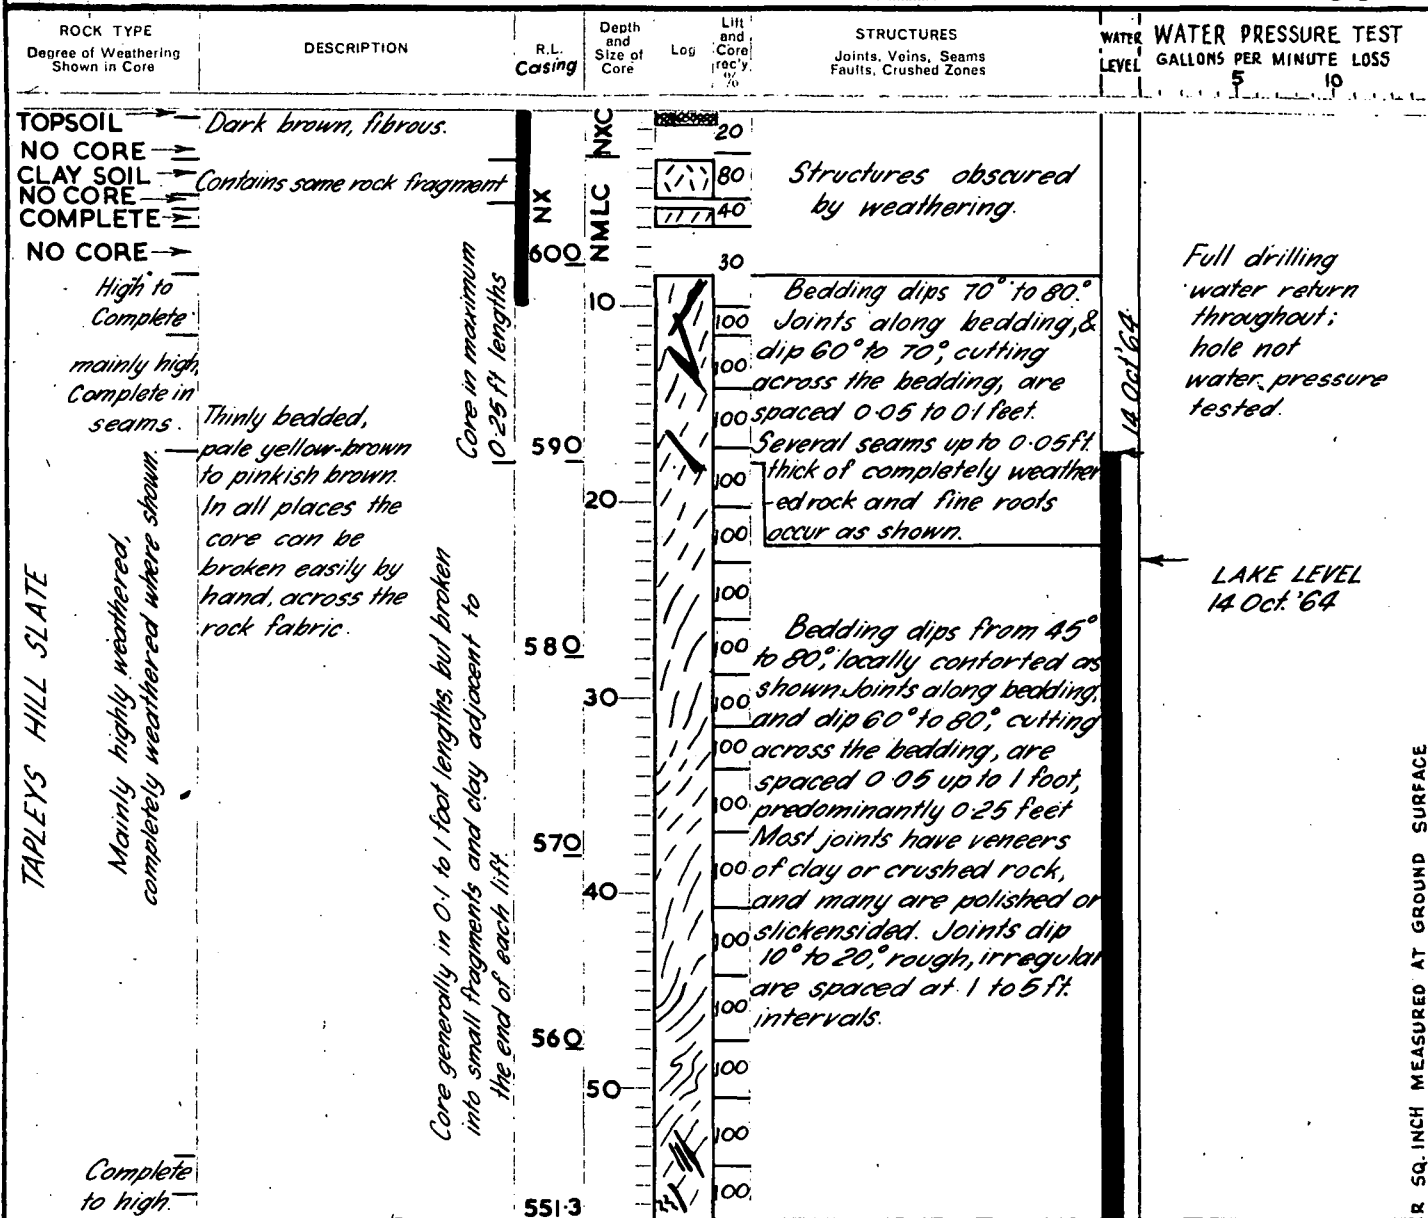 ROCK TYPE
Degree of Weathering
Shown in Core
DESCRIPTION
R.L.
Casing
Depth
and
Size of
Core
Log
Lift
and
Core
rec'y.
%
STRUCTURES
Joints, Veins, Seams
Faults, Crushed Zones
WATER
LEVEL
WATER PRESSURE TEST
GALLONS PER MINUTE LOSS
5 10
TOPSOIL
NO CORE
CLAY SOIL
NO CORE
COMPLETE
NO CORE
High to
Complete
mainly high,
Complete in
seams.
TAPLEYS HILL SLATE
Mainly highly weathered,
completely weathered where shown.
Complete
to high.
Dark brown, fibrous.
Contains some rock fragment
Thinly bedded,
pale yellow-brown
to pinkish brown.
In all places the
core can be
broken easily by
hand, across the
rock fabric.
Core in maximum
0·25 ft lengths
Core generally in 0·1 to 1 foot lengths, but broken
into small fragments and clay adjacent to
the end of each lift.
NX
600
590
580
570
560
551·3
NXC
NMLC
10
20
30
40
50
20
80
40
30
100
100
100
100
100
100
100
100
100
100
100
100
100
100
100
100
Structures obscured
by weathering.
Bedding dips 70° to 80°.
Joints along bedding, &
dip 60° to 70°, cutting
across the bedding, are
spaced 0·05 to 0·1 feet.
Several seams up to 0·05ft.
thick of completely weather
-ed rock and fine roots
occur as shown.
Bedding dips from 45°
to 80°, locally contorted as
shown. Joints along bedding,
and dip 60° to 80°, cutting
across the bedding, are
spaced 0·05 up to 1 foot,
predominantly 0·25 feet
Most joints have veneers
of clay or crushed rock,
and many are polished or
slickensided. Joints dip
10° to 20°, rough, irregular
are spaced at 1 to 5 ft.
intervals.
14 Oct '64
Full drilling
water return
throughout;
hole not
water pressure
tested.
LAKE LEVEL
14 Oct. '64
SQ. INCH MEASURED AT GROUND SURFACE